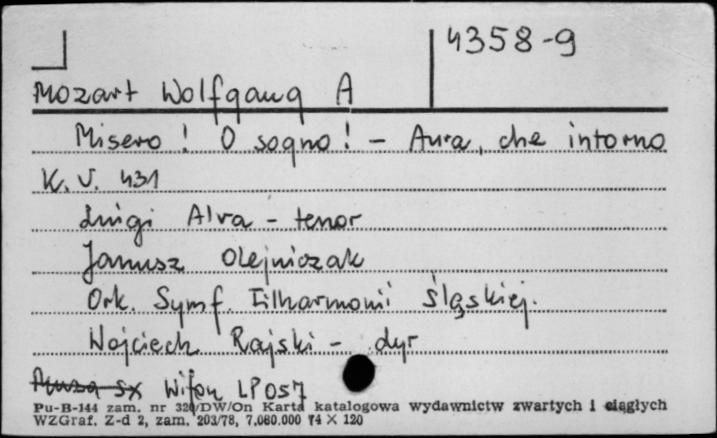 4358-9
Mozart Wolfgang A
Misero! O sogno! - Aura, che intorno
K.V. 431
Luigi Alva - tenor
Janusz Olejniczak
Ork. Symf. Filharmonii Śląskiej.
Wojciech Rajski - dyr
Muza SX Wifon LP 057
Pu-B-144 zam. nr 320/DW/On Karta katalogowa wydawnictw zwartych i ciągłych
WZGraf. Z-d 2, zam. 203/78, 7.080.000 74 × 120